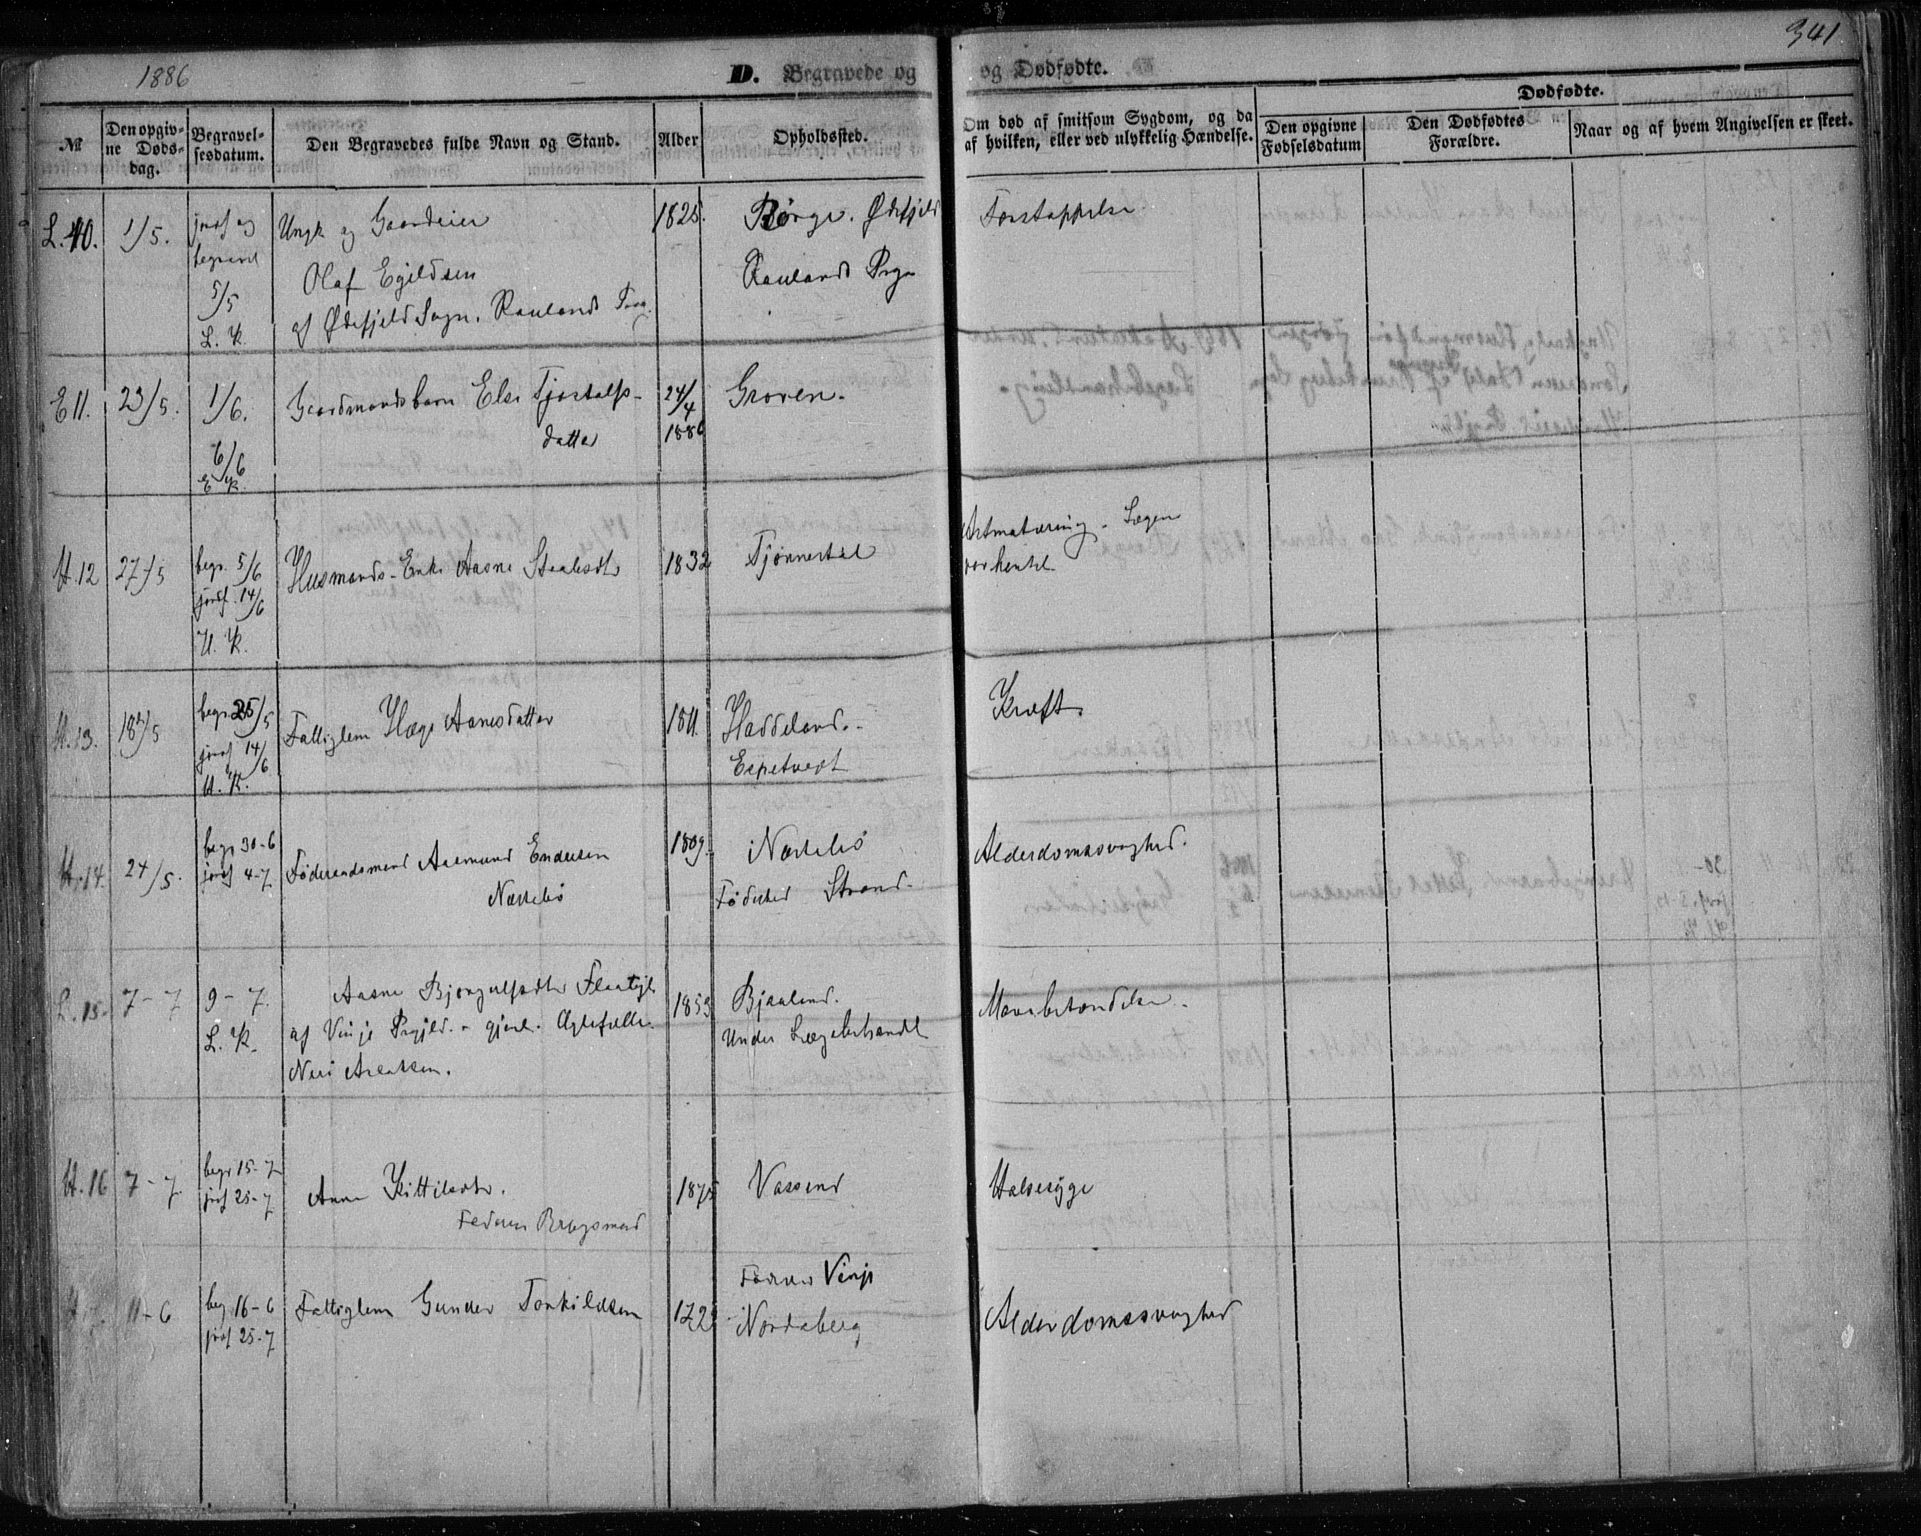 1886
D. Begravede og
og Dødfødte.
341
№
Den opgiv-
ne Døds-
dag.
Begravel-
sesdatum.
Den Begravedes fulde Navn og Stand.
Alder
Opholdssted.
Om død af smitsom Sygdom, og da
af hvilken, eller ved ulykkelig Hændelse.
Dødfødte.
Den opgivne
Fødselsdatum
Den Dødfødtes
Forældre.
Naar og af hvem Angivelsen er skeet.
L. 10. 1/5. jordf og Ungk og Gaardeier 1825. Børge. Øifjeld Forstoppelse
begravet Olaf Egildsen Raulands Prgj
5/5 af Øifjeld Sogn. Raulands
L. K.
E 11. 23/5. 1/6. Gaardmandsbarn Else Tjostolfs- 24/4 Groven.
datter 1886
6/6
E K.
H. 12 27/5 begr. 5/6 Husmands-Enke Aasne Staalesdtr 1832 Tjønnestøl Lægen
jordf. 14/6 var hentet
H. K.
H. 13. 18/5 begr 25/5 Fattiglem Hæge Aanesdatter 1811. Haddeland. Kræft.
jordf 14/6 Espetveit
H. K.
H. 14. 24/5. begr 30-6 Føderaadsmand Aasmund Endresen 1809. Næstebø Alderdomssvaghed.
jordf 4-7 Næstebø Fødested Strand.
L. 15. 7-7 9-7. Aasne Bjørgulfsdtr 1853 Bjaaland. Mavebetændelse.
L. K. af Vinje Prgjld. gjenl. Ægtefælle Under Lægebehandl
Neri Aslaksen.
H. 16 7-7. begr 15-7 Anne Kittilsdtr. 1875 Vassend Halssyge
jordf 25-7 Faderen Brugsmand
Vinje
11-6 beg 16-6 Fattiglem Gunder Torkildsen Nordaberg Alderdomssvaghed
jordf 25-7